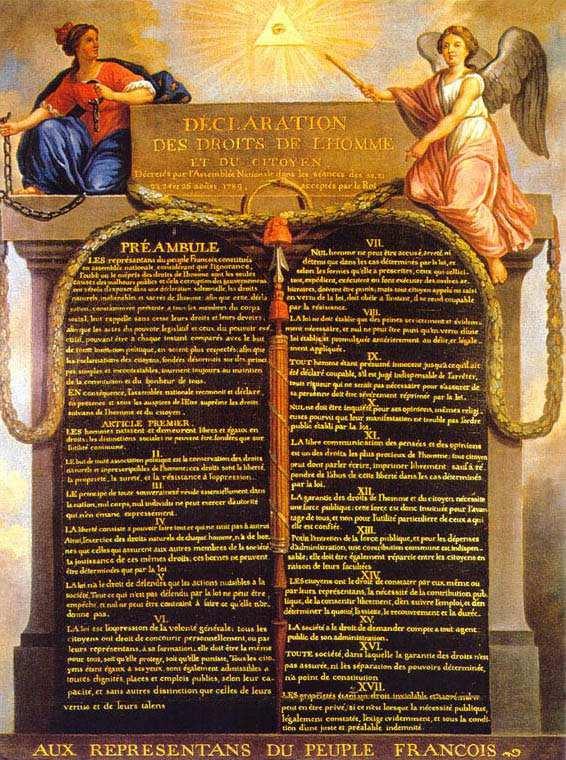 DÉCLARATION
DES DROITS DE L'HOMME
ET DU CITOYEN,
Décrétés par l'Assemblée Nationale dans les séances des 20, 21
23, 24 et 26 août 1789, acceptés par le Roi
PRÉAMBULE
LES représentans du peuple François constitués
en assemblée nationale, considérant que l'ignorance,
l'oubli ou le mépris des droits de l'homme sont les seules
causes des malheurs publics et de la corruption des gouvernemens
ont résolu d'exposer dans une déclaration solemnelle, les droits
naturels, inaliénables et sacrés de l'homme: afin que cette décla-
ration, constamment présente a tous les membres du corps
social, leur rappelle sans cesse leurs droits et leurs devoirs;
afin que les actes du pouvoir legislatif et ceux du pouvoir exé-
cutif, pouvant être a chaque instant comparés avec le but
de toute institution politique, en soient plus respectés; afin que
les réclamations des citoyens, fondées désormais sur des prin-
cipes simples et incontestables, tournent toujours au maintien
de la constitution et du bonheur de tous.
EN conséquence, l'assemblée nationale reconnoit et déclare
en presence et sous les auspices de l'Etre suprême les droits
suivans de l'homme et du citoyen.
ARTICLE PREMIER.
LES hommes naissent et demeurent libres et égaux en
droits; les distinctions sociales ne peuvent être fondées que sur
l'utilité commune.
II.
LE but de toute association politique est la conservation des droits
naturels et imprescriptibles de l'homme; ces droits sont la liberté,
la propriété, la sureté, et la résistance à l'oppression.
III.
LE principe de toute souveraineté réside essentiellement dans
la nation, nul corps, nul individu ne peut exercer d'autorité
qui n'en émane expressement.
IV.
LA liberté consiste a pouvoir faire tout ce qui ne nuit pas à autrui
Ainsi, l'exercice des droits naturels de chaque homme, n'a de bor-
nes que celles qui assurent aux autres membres de la société
la jouissance de ces mêmes droits; ces bornes ne peuvent
être déterminées que par la loi
V.
LA loi n'a le droit de défendre que les actions nuisibles à la
société. Tout ce qui n'est pas défendu par la loi ne peut être
empêché, et nul ne peut être contraint à faire ce qu'elle n'or-
donne pas.
VI.
LA loi est l'expression de la volonté générale; tous les
citoyens ont droit de concourir personnellement, ou par
leurs représentans, à sa formation; elle doit être la même
pour tous, soit qu'elle protege, soit qu'elle punisse. Tous les cito-
yens étant égaux à ses yeux, sont également admissibles à
toutes dignités, places et emplois publics, selon leur ca-
pacité, et sans autres distinction que celles de leurs
vertus et de leurs talens
VII.
NUL homme ne peut être accusé, arreté ni
détenu que dans les cas déterminés par la loi, et
selon les formes qu'elle a prescrites, ceux qui sollici-
tent, expédient, exécutent ou font exécuter des ordres ar-
bitraires, doivent être punis; mais tout citoyen appelé ou saisi
en vertu de la loi, doit obéir a l'instant, il se rend coupable
par la résistance.
VIII.
LA loi ne doit établir que des peines strictement et évidem-
ment nécessaire, et nul ne peut être puni qu'en vertu d'une
loi établie et promulguée antérieurement au délit, et légale-
ment appliquée.
IX.
TOUT homme étant présumé innocent jusqu'a ce qu'il ait
été déclaré coupable, s'il est jugé indispensable de l'arrêter,
toute rigueur qui ne serait pas nécessaire pour s'assurer de
sa personne doit être sévèrement réprimée par la loi.
X.
NUL ne doit être inquiété pour ses opinions, mêmes religi-
euses pourvu que leur manifestation ne trouble pas l'ordre
public établi par la loi.
XI.
LA libre communication des pensées et des opinions
est un des droits les plus precieux de l'homme; tout citoyen
peut donc parler écrire, imprimer librement: sauf à ré-
pondre de l'abus de cette liberté dans les cas déterminés
par la loi.
XII.
LA garantie des droits de l'homme et du citoyen nécessite
une force publique; cette force est donc instituée pour l'avan-
tage de tous, et non pour l'utilité particuliere de ceux a qui
elle est confiée.
XIII.
POUR l'entretien de la force publique, et pour les dépenses
d'administration, une contribution commune est indispen-
sable; elle doit être également répartie entre les citoyens en
raison de leurs facultées
XIV.
LES citoyens ont le droit de constater par eux même ou
par leurs représentans, la nécessité de la contribution pub-
lique, de la consentir librement, d'en suivre l'emploi, et d'en
déterminer la quotité, l'assiette, le recouvrement et la durée.
XV.
LA société a le droit de demander compte a tout agent
public de son administration.
XVI.
TOUTE société, dans laquelle la garantie des droits n'est
pas assurée, ni les séparation des pouvoirs déterminée,
n'a point de constitution
XVII.
LES propriétés étant un droit inviolable et sacré, nul ne
peut en être privé, si ce n'est lorsque la nécessité publique,
légalement constatée, l'exige evidemment, et sous la condi-
tion d'une juste et préalable indemnité.
AUX REPRESENTANS DU PEUPLE FRANCOIS